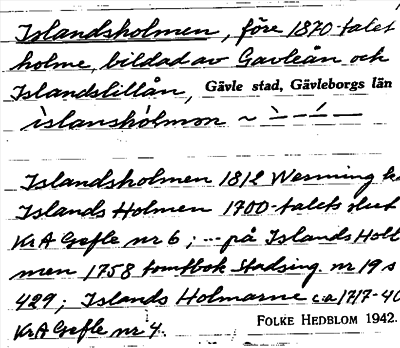 Islandsholmen, före 1870-talet
holme, bildad av Gavleån och
Islandslillån, Gävle stad, Gävleborgs län
ìslanshòlmon ~
Islandsholmen 1812 Wenning
Islands Holmen 1700-talets slut
KrA Gefle nr 6; ... på Islands Holl
men 1758 tomtbok Stadsing. nr 19 s
429; Islands Holmarne ca 1717-40
KrA Gefle nr 4.
FOLKE HEDBLOM 1942.